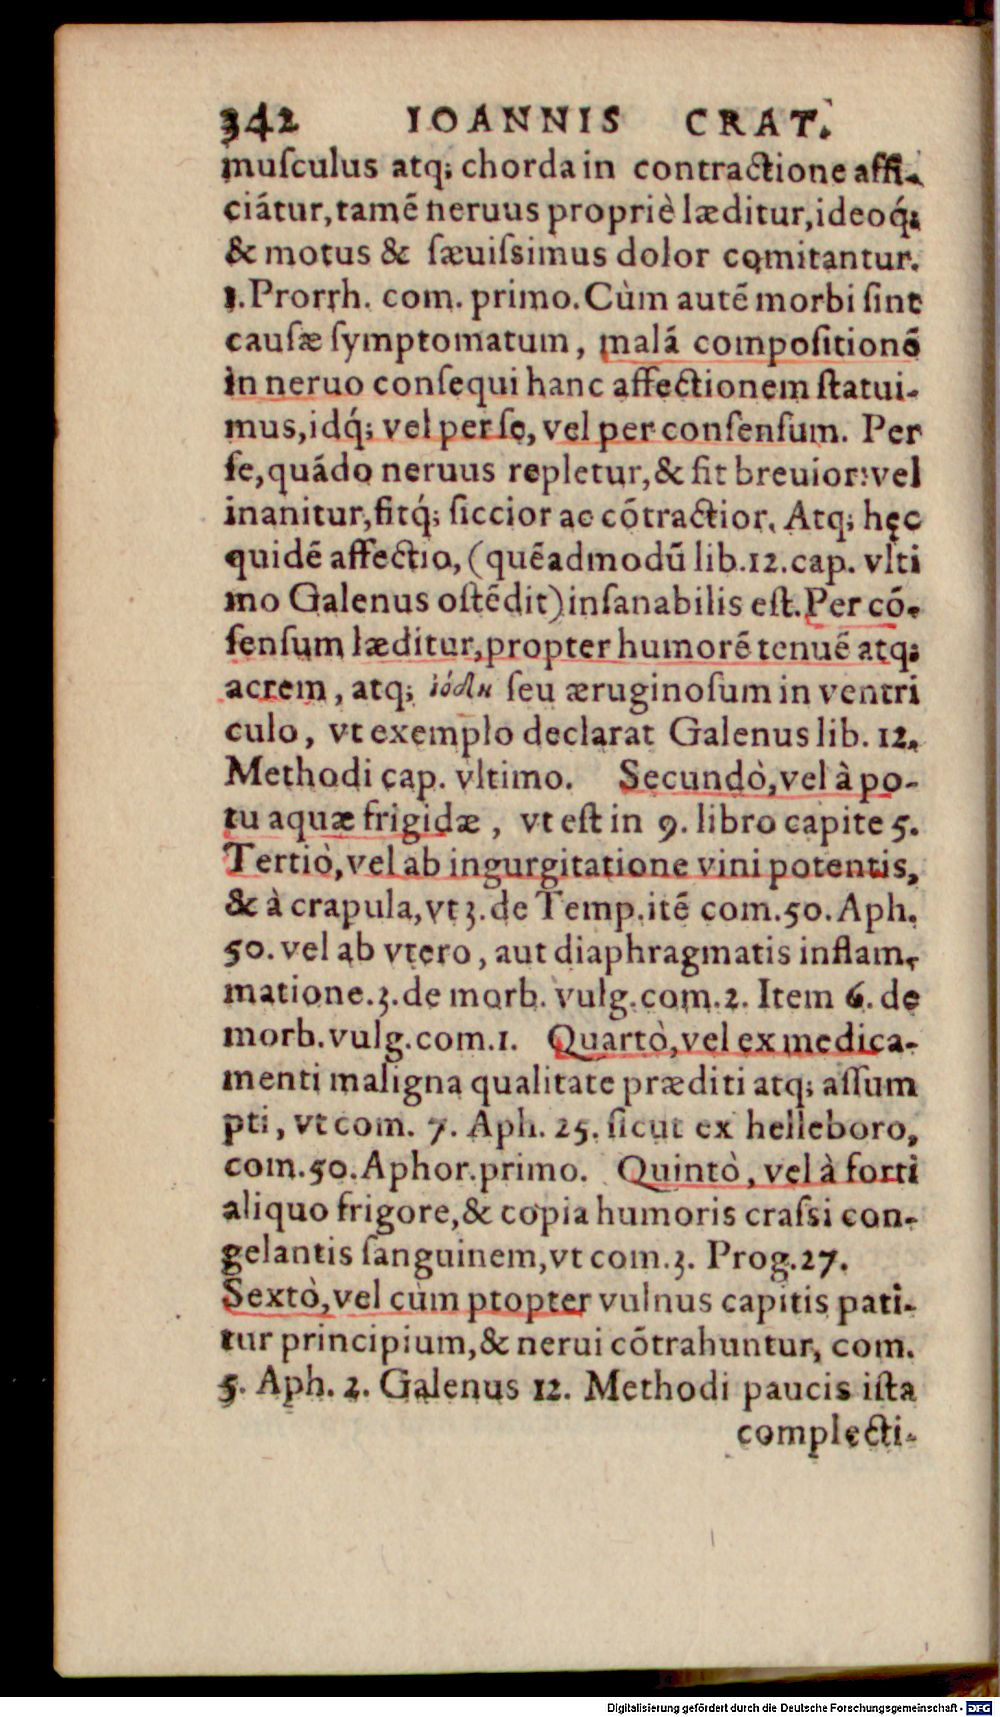 342 IOANNIS CRAT.
muſculus atq; chorda in contractione affi-
ciátur, tamẽ neruus propriè læditur, ideoq́;
& motus & ſæuiſsimus dolor comitantur.
1. Prorrh. com. primo. Cùm autẽ morbi ſint
cauſæ ſymptomatum, malã compoſitionẽ
in neruo conſequi hanc affectionem ſtatui-
mus, idq́; vel per ſe, vel per conſenſum. Per
ſe, quádo neruus repletur, & fit breuior: vel
inanitur, fitq́; ſiccior ac cõtractior. Atq; hęc
quidẽ affectio, (quẽadmodũ lib. 12. cap. vlti
mo Galenus oſtẽdit) inſanabilis eſt. Per cõ-
ſenſum læditur, propter humorẽ tenuẽ atq;
acrem, atq; ἰώδη ſeu æruginoſum in ventri
culo, vt exemplo declarat Galenus lib. 12.
Methodi cap. vltimo. Secundò, vel à po-
tu aquæ frigidæ, vt eſt in 9. libro capite 5.
Tertiò, vel ab ingurgitatione vini potentis,
& à crapula, vt 3. de Temp. itẽ com. 50. Aph.
50. vel ab vtero, aut diaphragmatis inflam-
matione. 3. de morb. vulg. com. 2. Item 6. de
morb. vulg. com. 1. Quartò, vel ex medica-
menti maligna qualitate præditi atq; aſſum
pti, vt com. 7. Aph. 25. ſicut ex helleboro,
com. 50. Aphor. primo. Quintò, vel à forti
aliquo frigore, & copia humoris craſsi con-
gelantis ſanguinem, vt com. 3. Prog. 27.
Sextò, vel cùm ptopter vulnus capitis pati-
tur principium, & nerui cõtrahuntur, com.
5. Aph. 2. Galenus 12. Methodi paucis iſta
complecti-
Digitalisierung gefördert durch die Deutsche Forschungsgemeinschaft - DFG